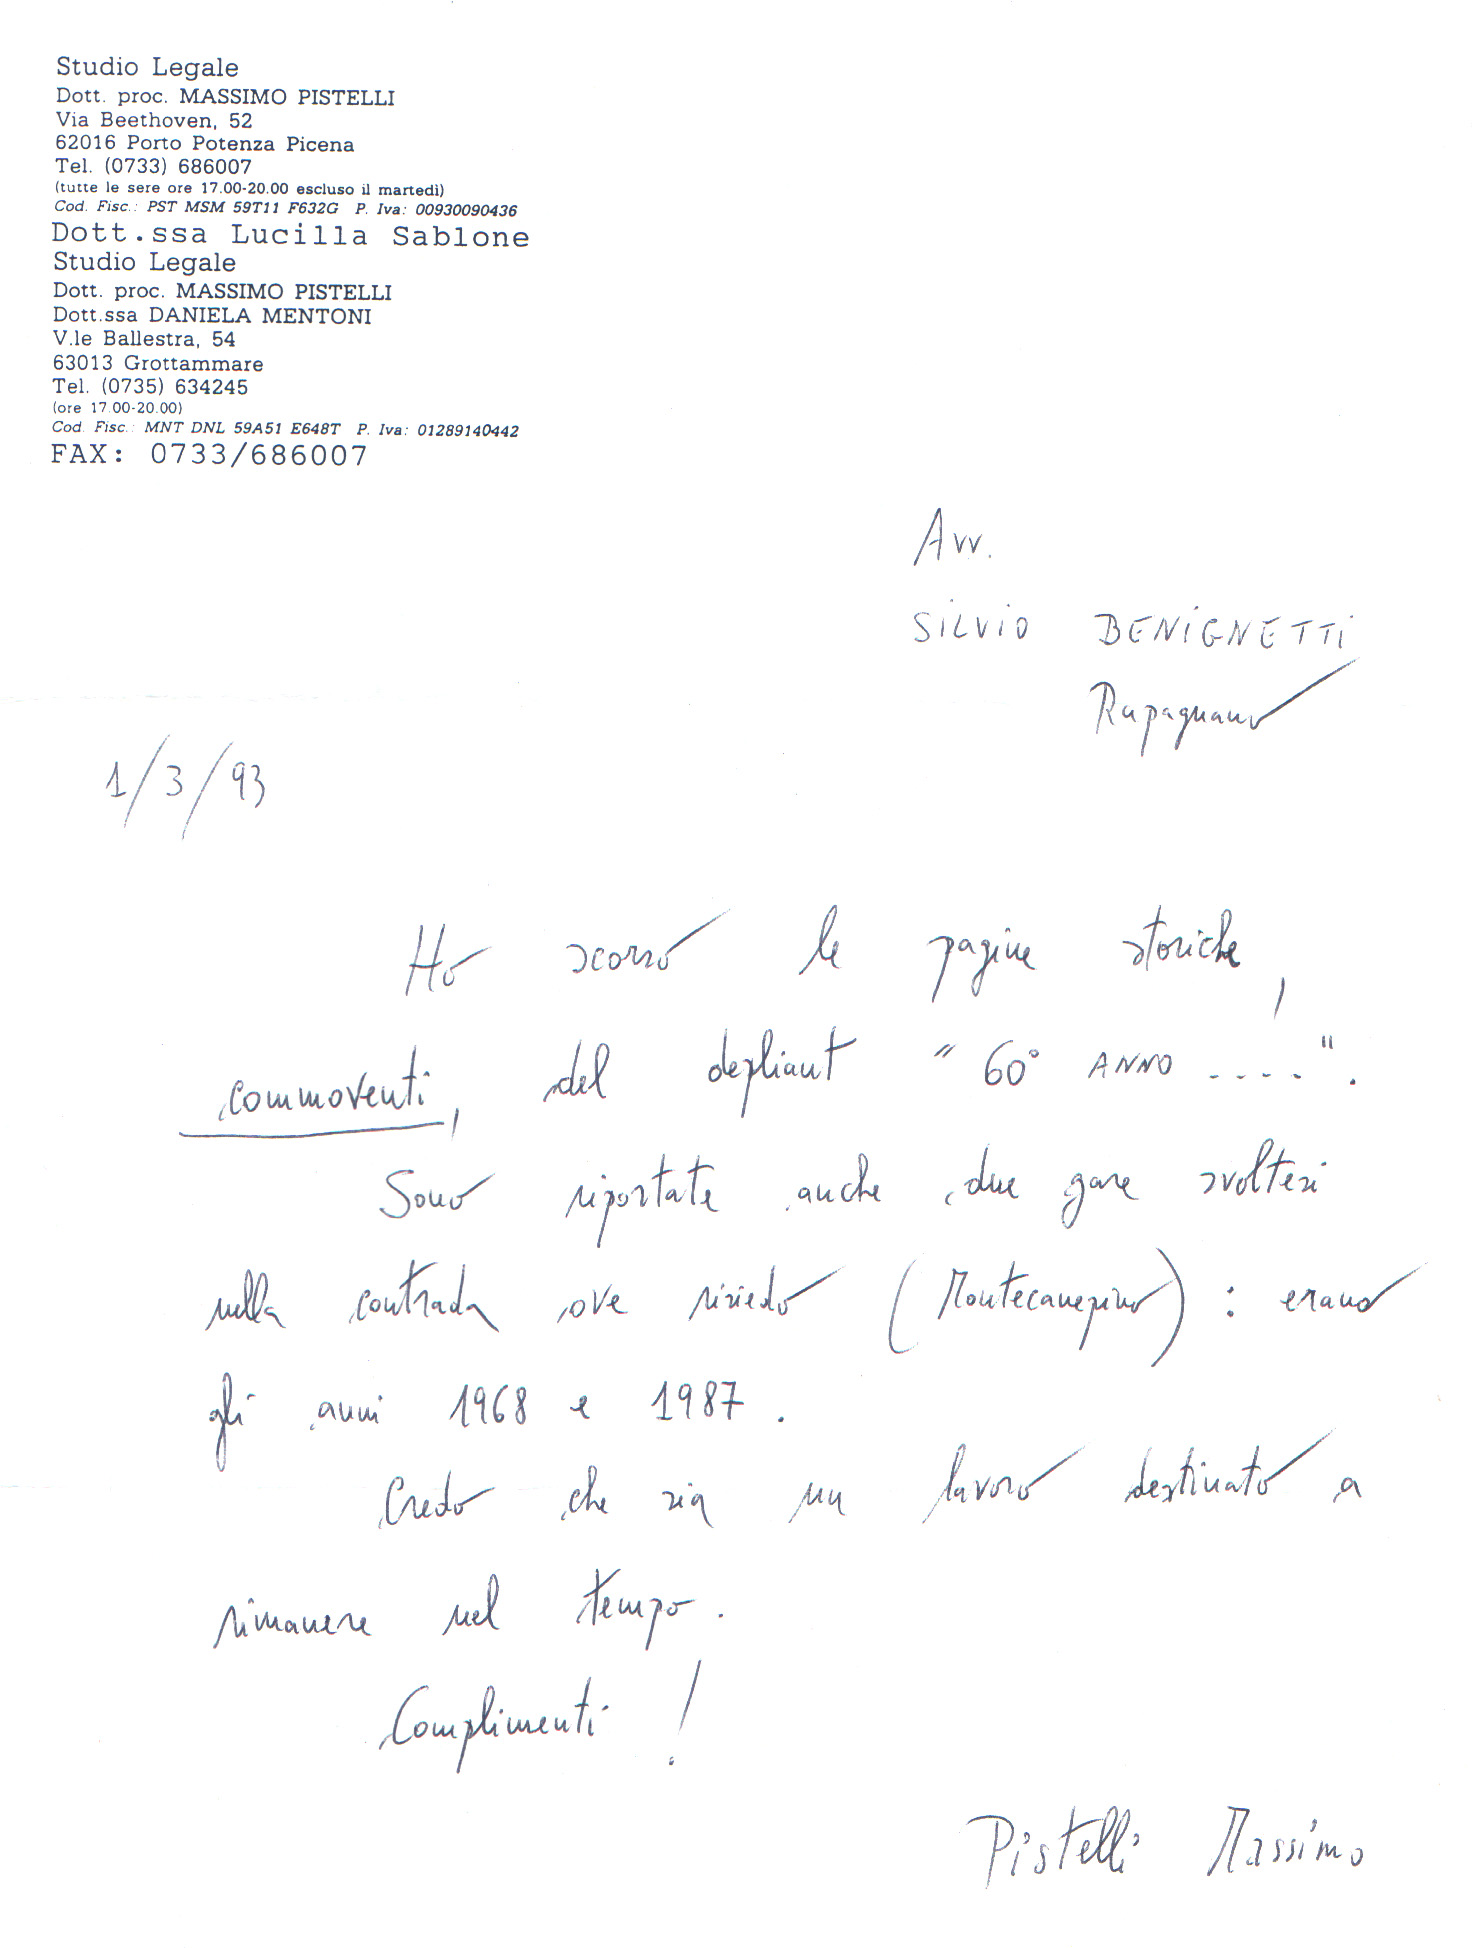 Studio Legale
Dott. proc. MASSIMO PISTELLI
Via Beethoven, 52
62016 Porto Potenza Picena
Tel. (0733) 686007
(tutte le sere ore 17.00-20.00 escluso il martedì)
Cod. Fisc.: PST MSM 59T11 F632G P. Iva: 00930090436
Dott.ssa Lucilla Sablone
Studio Legale
Dott. proc. MASSIMO PISTELLI
Dott.ssa DANIELA MENTONI
V.le Ballestra, 54
63013 Grottammare
Tel. (0735) 634245
(ore 17.00-20.00)
Cod. Fisc.: MNT DNL 59A51 E648T P. Iva: 01289140442
FAX: 0733/686007
Avv.
SILVIO BENIGNETTI
Rapagnano
1/3/93
Ho scorso le pagine storiche,
commoventi, del depliant "60° ANNO ....".
Sono riportate anche due gare svoltesi
nella contrada ove risiedo (Montecanepino): erano
gli anni 1968 e 1987.
Credo che sia un lavoro destinato a
rimanere nel tempo.
Complimenti!
Pistelli Massimo